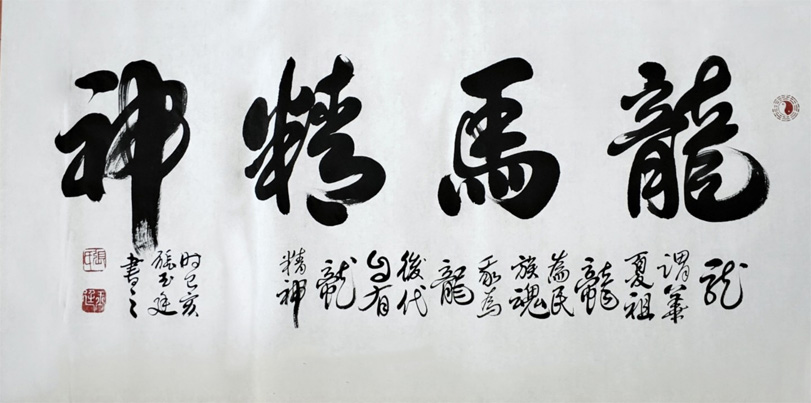 龍馬精神
龍
謂華
夏祖
龍
為民
族魂
我為
龍
後代
自有
龍
精神
時己亥
張玉廷
書之